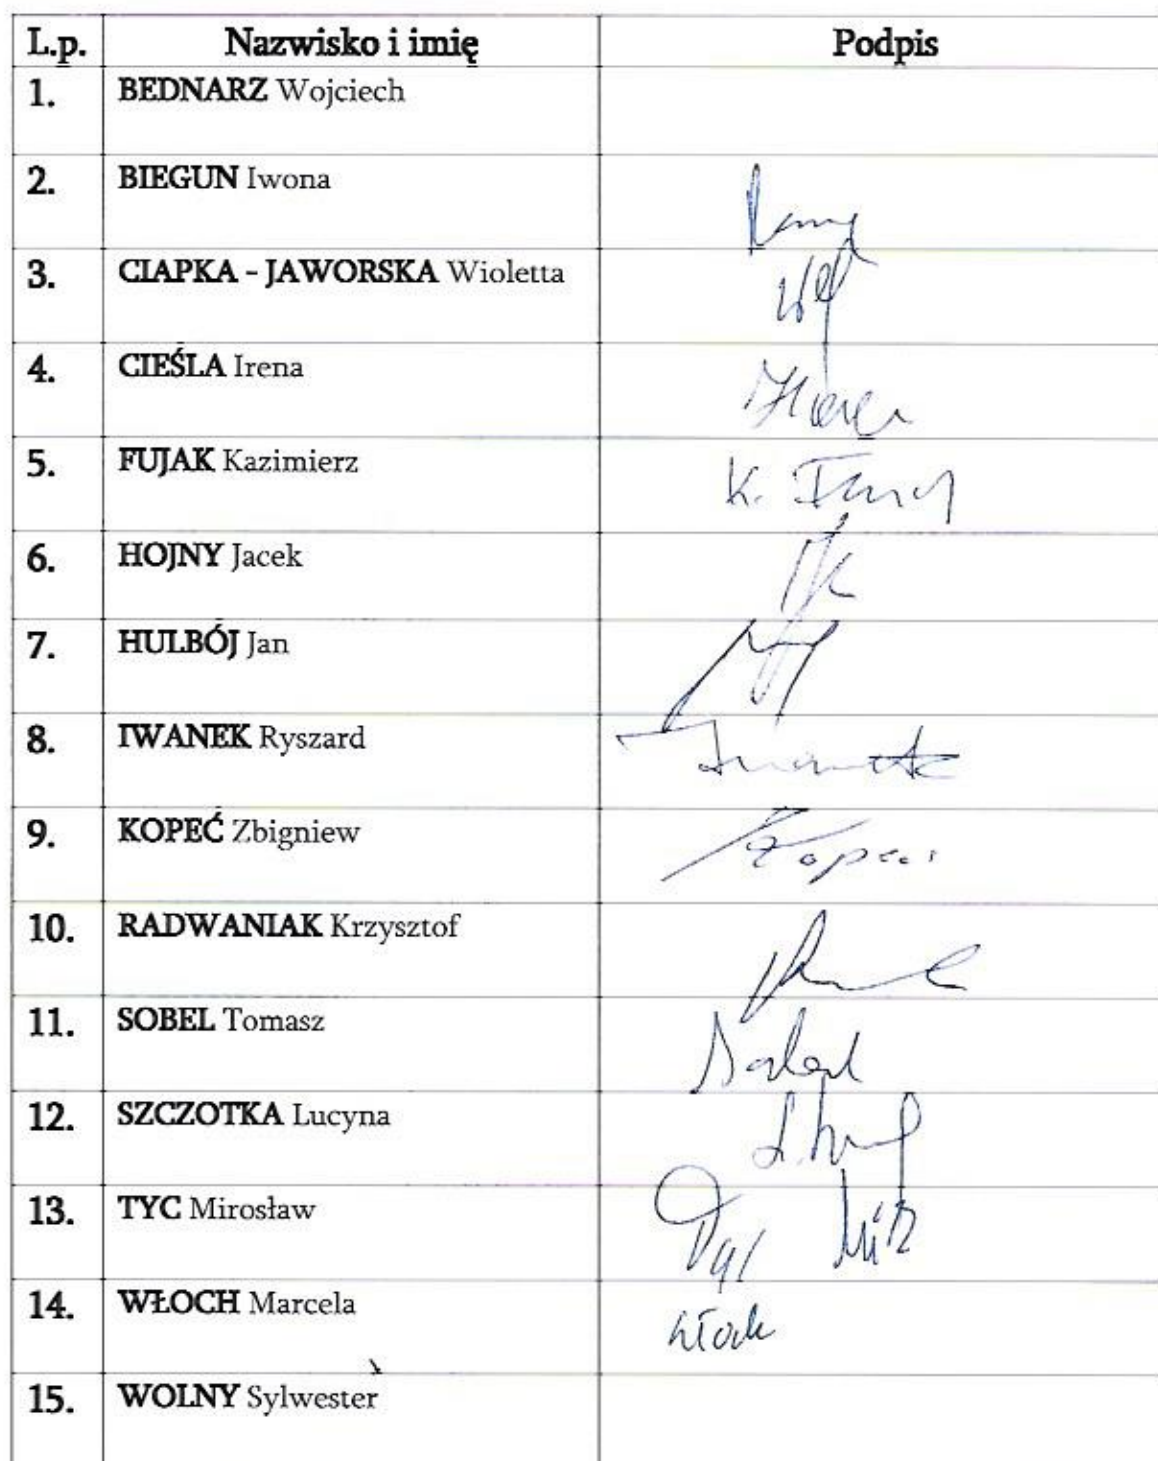 L.p. Nazwisko i imię Podpis
1. BEDNARZ Wojciech
2. BIEGUN Iwona
3. CIAPKA - JAWORSKA Wioletta
4. CIEŚLA Irena
5. FUJAK Kazimierz K.
6. HOJNY Jacek
7. HULBÓJ Jan
8. IWANEK Ryszard Iwanek
9. KOPEĆ Zbigniew
10. RADWANIAK Krzysztof
11. SOBEL Tomasz Sobel
12. SZCZOTKA Lucyna
13. TYC Mirosław Tyc
14. WŁOCH Marcela Włoch
15. WOLNY Sylwester